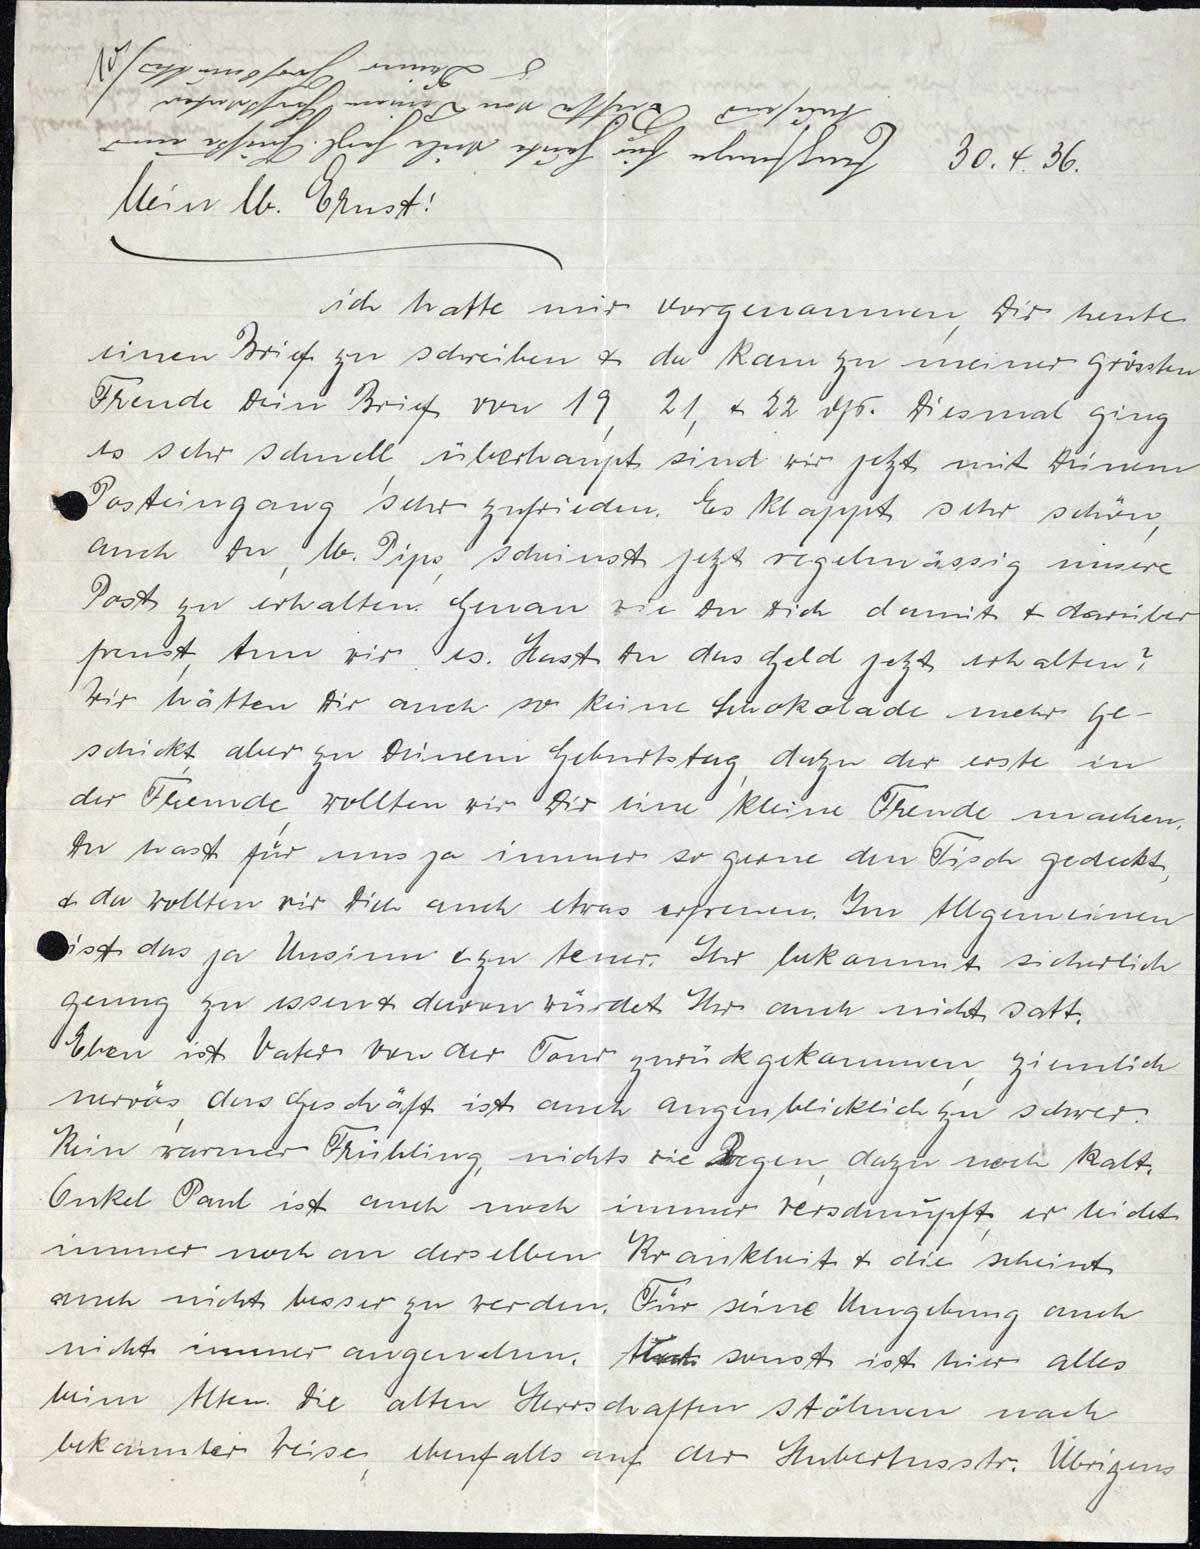 Empfange für heute viele herzl. Grüße und
tausend Küsse von Deinem Großvater
& Deiner Großmutter
30.4.36.
Mein lb. Ernst!
ich hatte mir vorgenommen, Dir heute
einen Brief zu schreiben & da kam zu meiner grössten
Freude Dein Brief von 19, 21, & 22 ds. Diesmal ging
es sehr schnell, überhaupt sind wir jetzt mit Deinem
Posteingang sehr zufrieden. Es klappt sehr schön,
auch Du, lb. Pips, scheinst jetzt regelmässig unsere
Post zu erhalten. Genau wie Du Dich damit & darüber
freust, tun wir es. Hast Du das Geld jetzt erhalten?
Wir hätten Dir auch so keine Schokolade mehr ge-
schickt, aber zu Deinem Geburtstag, dazu der erste in
der Fremde, wollten wir Dir eine kleine Freude machen.
Du hast für uns ja immer so gerne den Tisch gedeckt,
& da wollten wir Dich auch etwas erfreuen. Im Allgemeinen
ist das ja Unsinn & zu teuer. Ihr bekommt sicherlich
genug zu essen & davon würdet Ihr auch nicht satt.
Eben ist Vater von der Tour zurückgekommen, ziemlich
nervös, das Geschäft ist auch augenblicklich zu schwer.
Kein warmer Frühling, nichts wie Regen, dazu noch kalt.
Onkel Paul ist auch noch immer verschnupft, er leidet
immer noch an derselben Krankheit & die scheint
auch nicht besser zu werden. Für seine Umgebung auch
nicht immer angenehm. sonst ist hier alles
beim Alten. Die alten Herrschaften stöhnen nach
bekannter Weise, ebenfalls auf der Hubertusstr. Übrigens